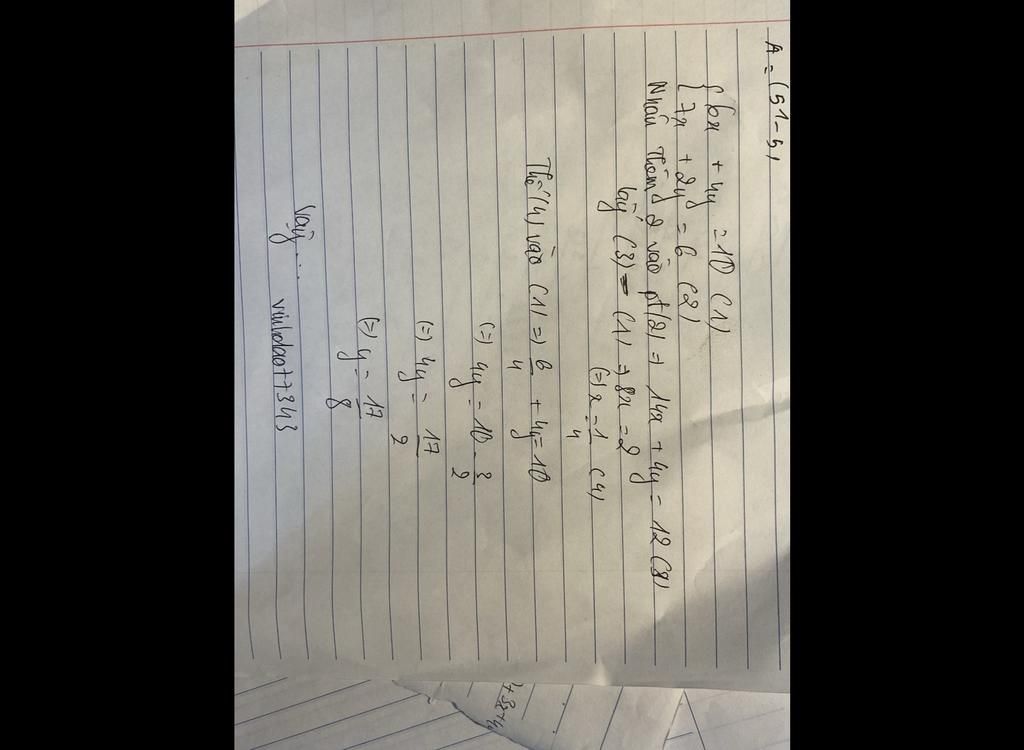 A = (51-5)
{ 6x + 4y = 10 (1)
{ 7x + 2y = 6 (2)
Nhân thêm 2 vào pt(2) => 14x + 4y = 12 (3)
lấy (3) - (1) => 8x = 2
(=) x = 1/4 (4)
Thế (4) vào (1) => 6/4 + 4y = 10
(=) 4y = 10 - 3/2
(=) 4y = 17/2
(=) y = 17/8
Vậy ...
vinhdao77343